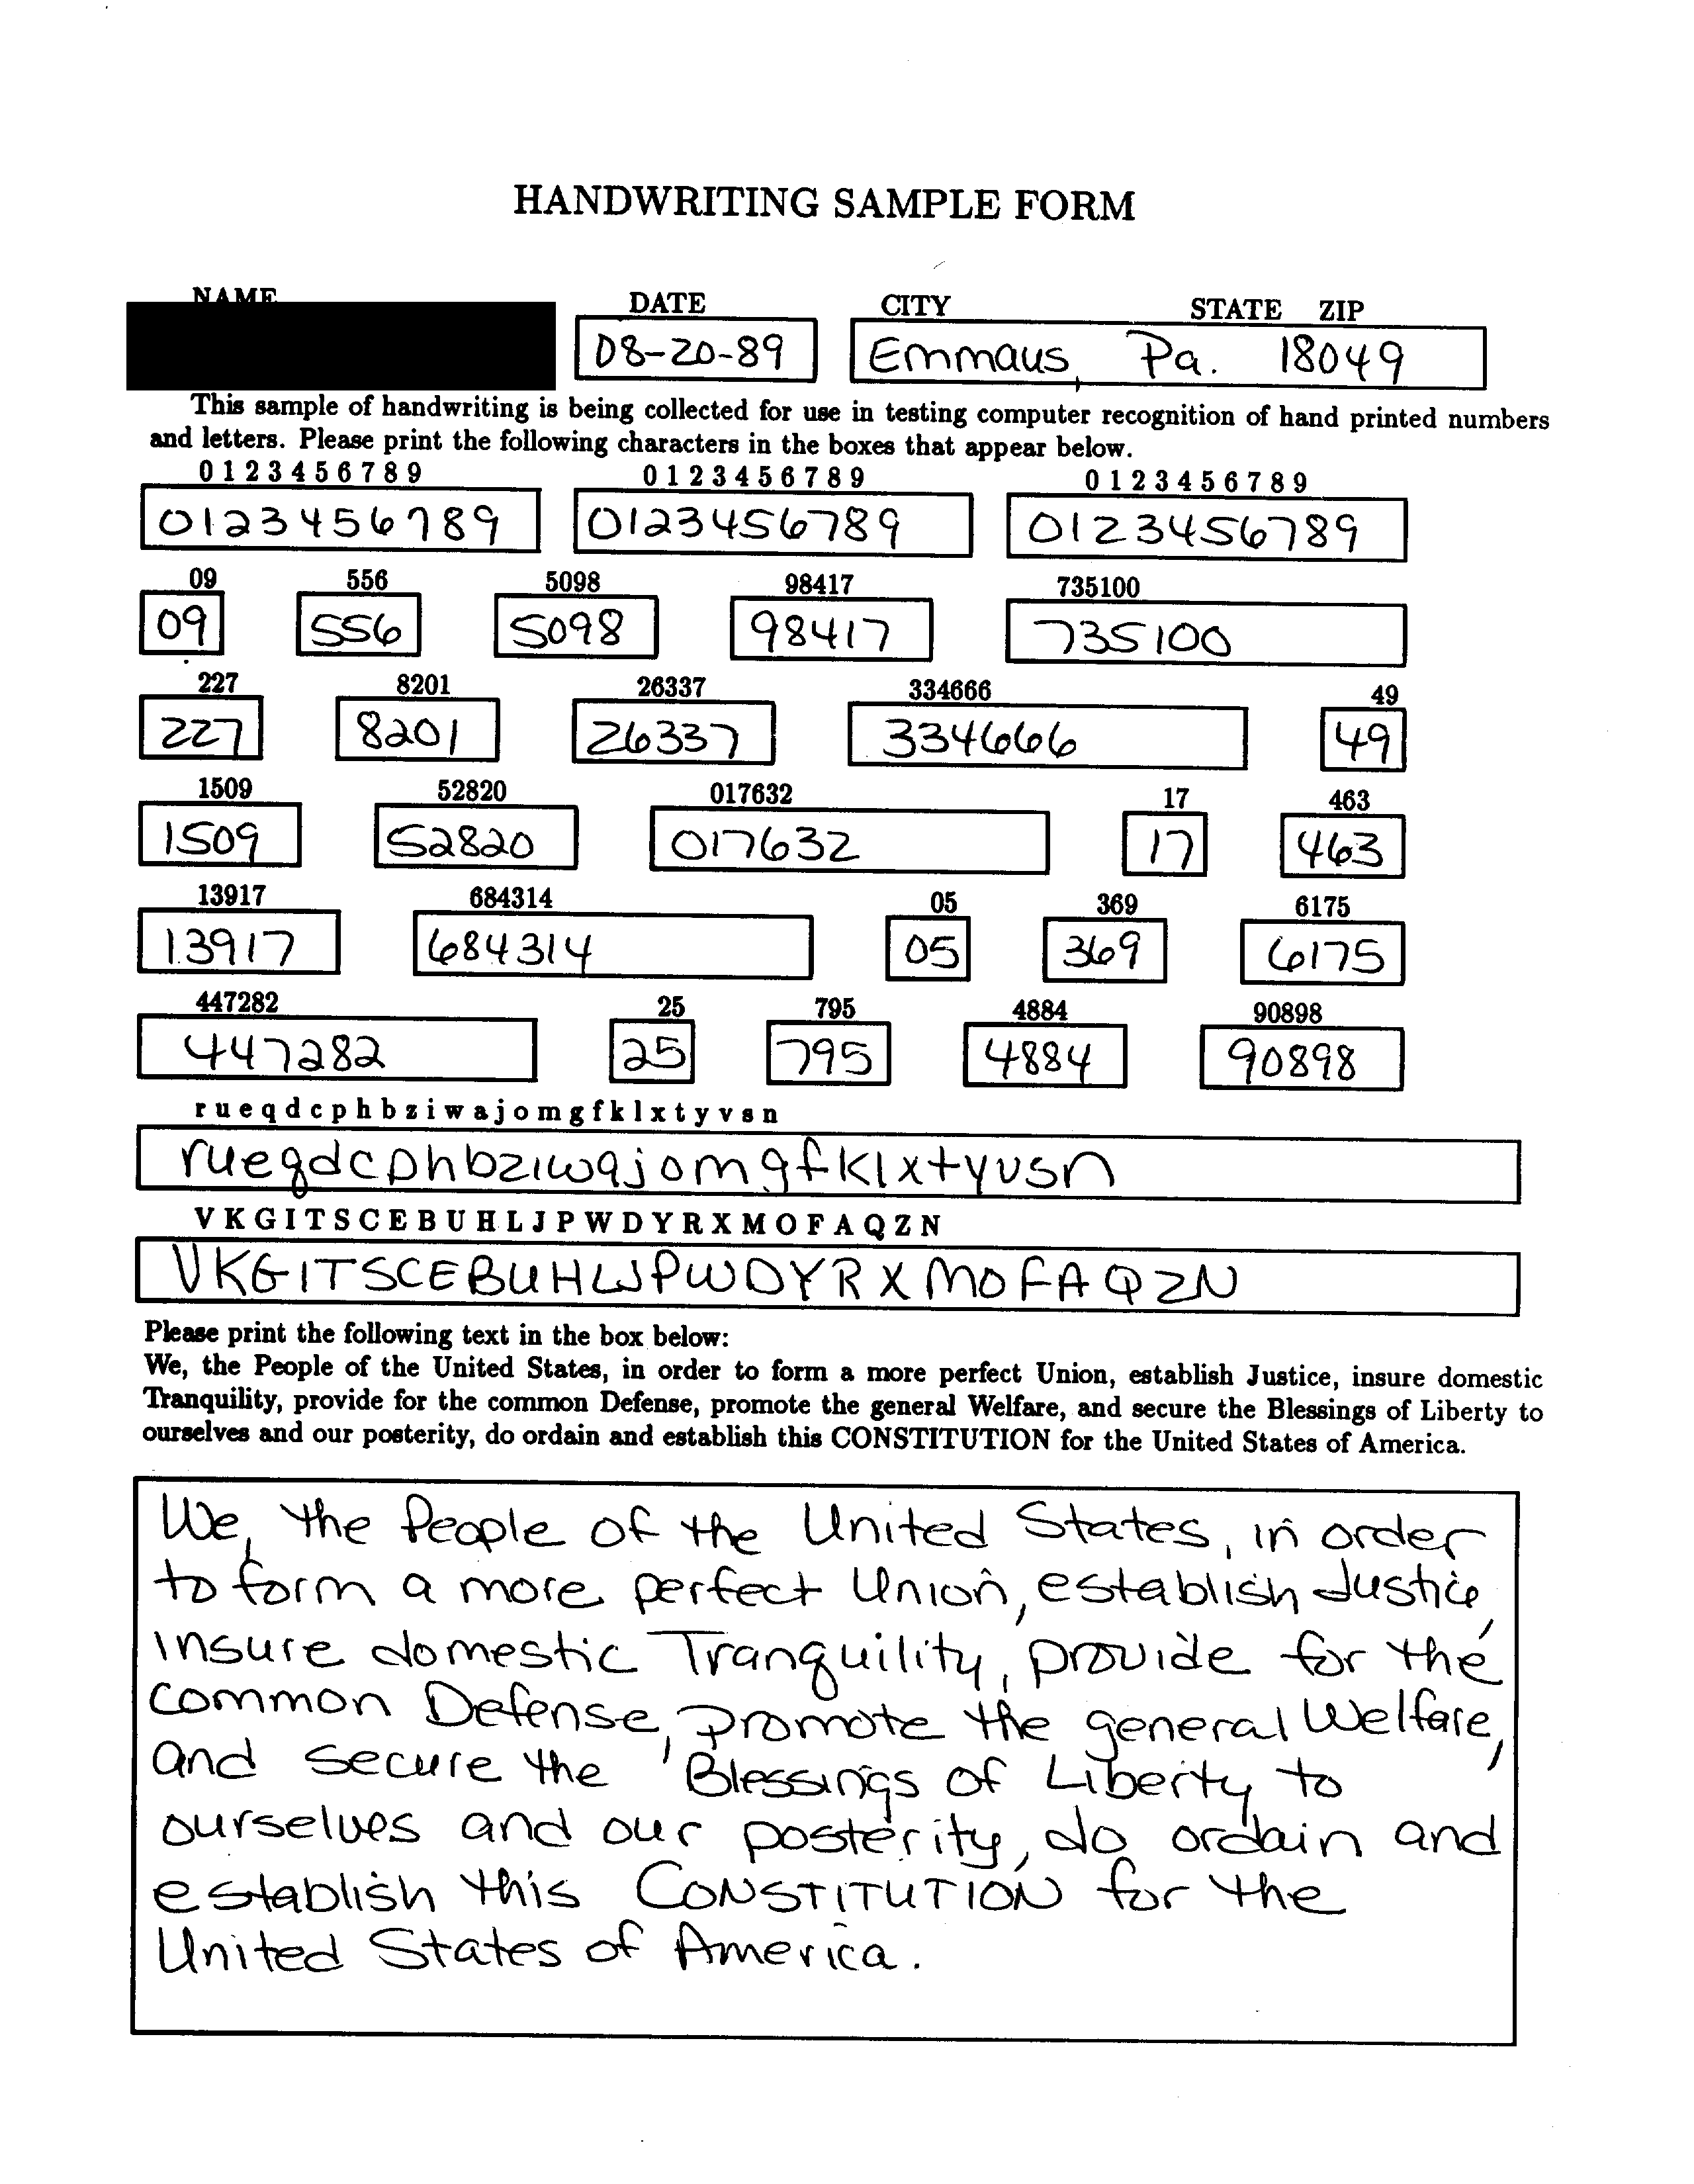 HANDWRITING SAMPLE FORM
NAME DATE CITY STATE ZIP
08-20-89 Emmaus, Pa. 18049
This sample of handwriting is being collected for use in testing computer recognition of hand printed numbers
and letters. Please print the following characters in the boxes that appear below.
0 1 2 3 4 5 6 7 8 9 0 1 2 3 4 5 6 7 8 9 0 1 2 3 4 5 6 7 8 9
0123456789 0123456789 0123456789
09 556 5098 98417 735100
09 556 5098 98417 735100
227 8201 26337 334666 49
227 8201 26337 334666 49
1509 52820 017632 17 463
1509 52820 017632 17 463
13917 684314 05 369 6175
13917 684314 05 369 6175
447282 25 795 4884 90898
447282 25 795 4884 90898
r u e q d c p h b z i w a j o m g f k l x t y v s n
rueqdcphbziwajomgfklxtyvsn
V K G I T S C E B U H L J P W D Y R X M O F A Q Z N
VKGITSCEBUHLJPWDYRXMOFAQZN
Please print the following text in the box below:
We, the People of the United States, in order to form a more perfect Union, establish Justice, insure domestic
Tranquility, provide for the common Defense, promote the general Welfare, and secure the Blessings of Liberty to
ourselves and our posterity, do ordain and establish this CONSTITUTION for the United States of America.
We, the People of the United States, in order
to form a more perfect Union, establish Justice,
insure domestic Tranquility, provide for the
common Defense, promote the general Welfare,
and secure the Blessings of Liberty to
ourselves and our posterity, do ordain and
establish this CONSTITUTION for the
United States of America.